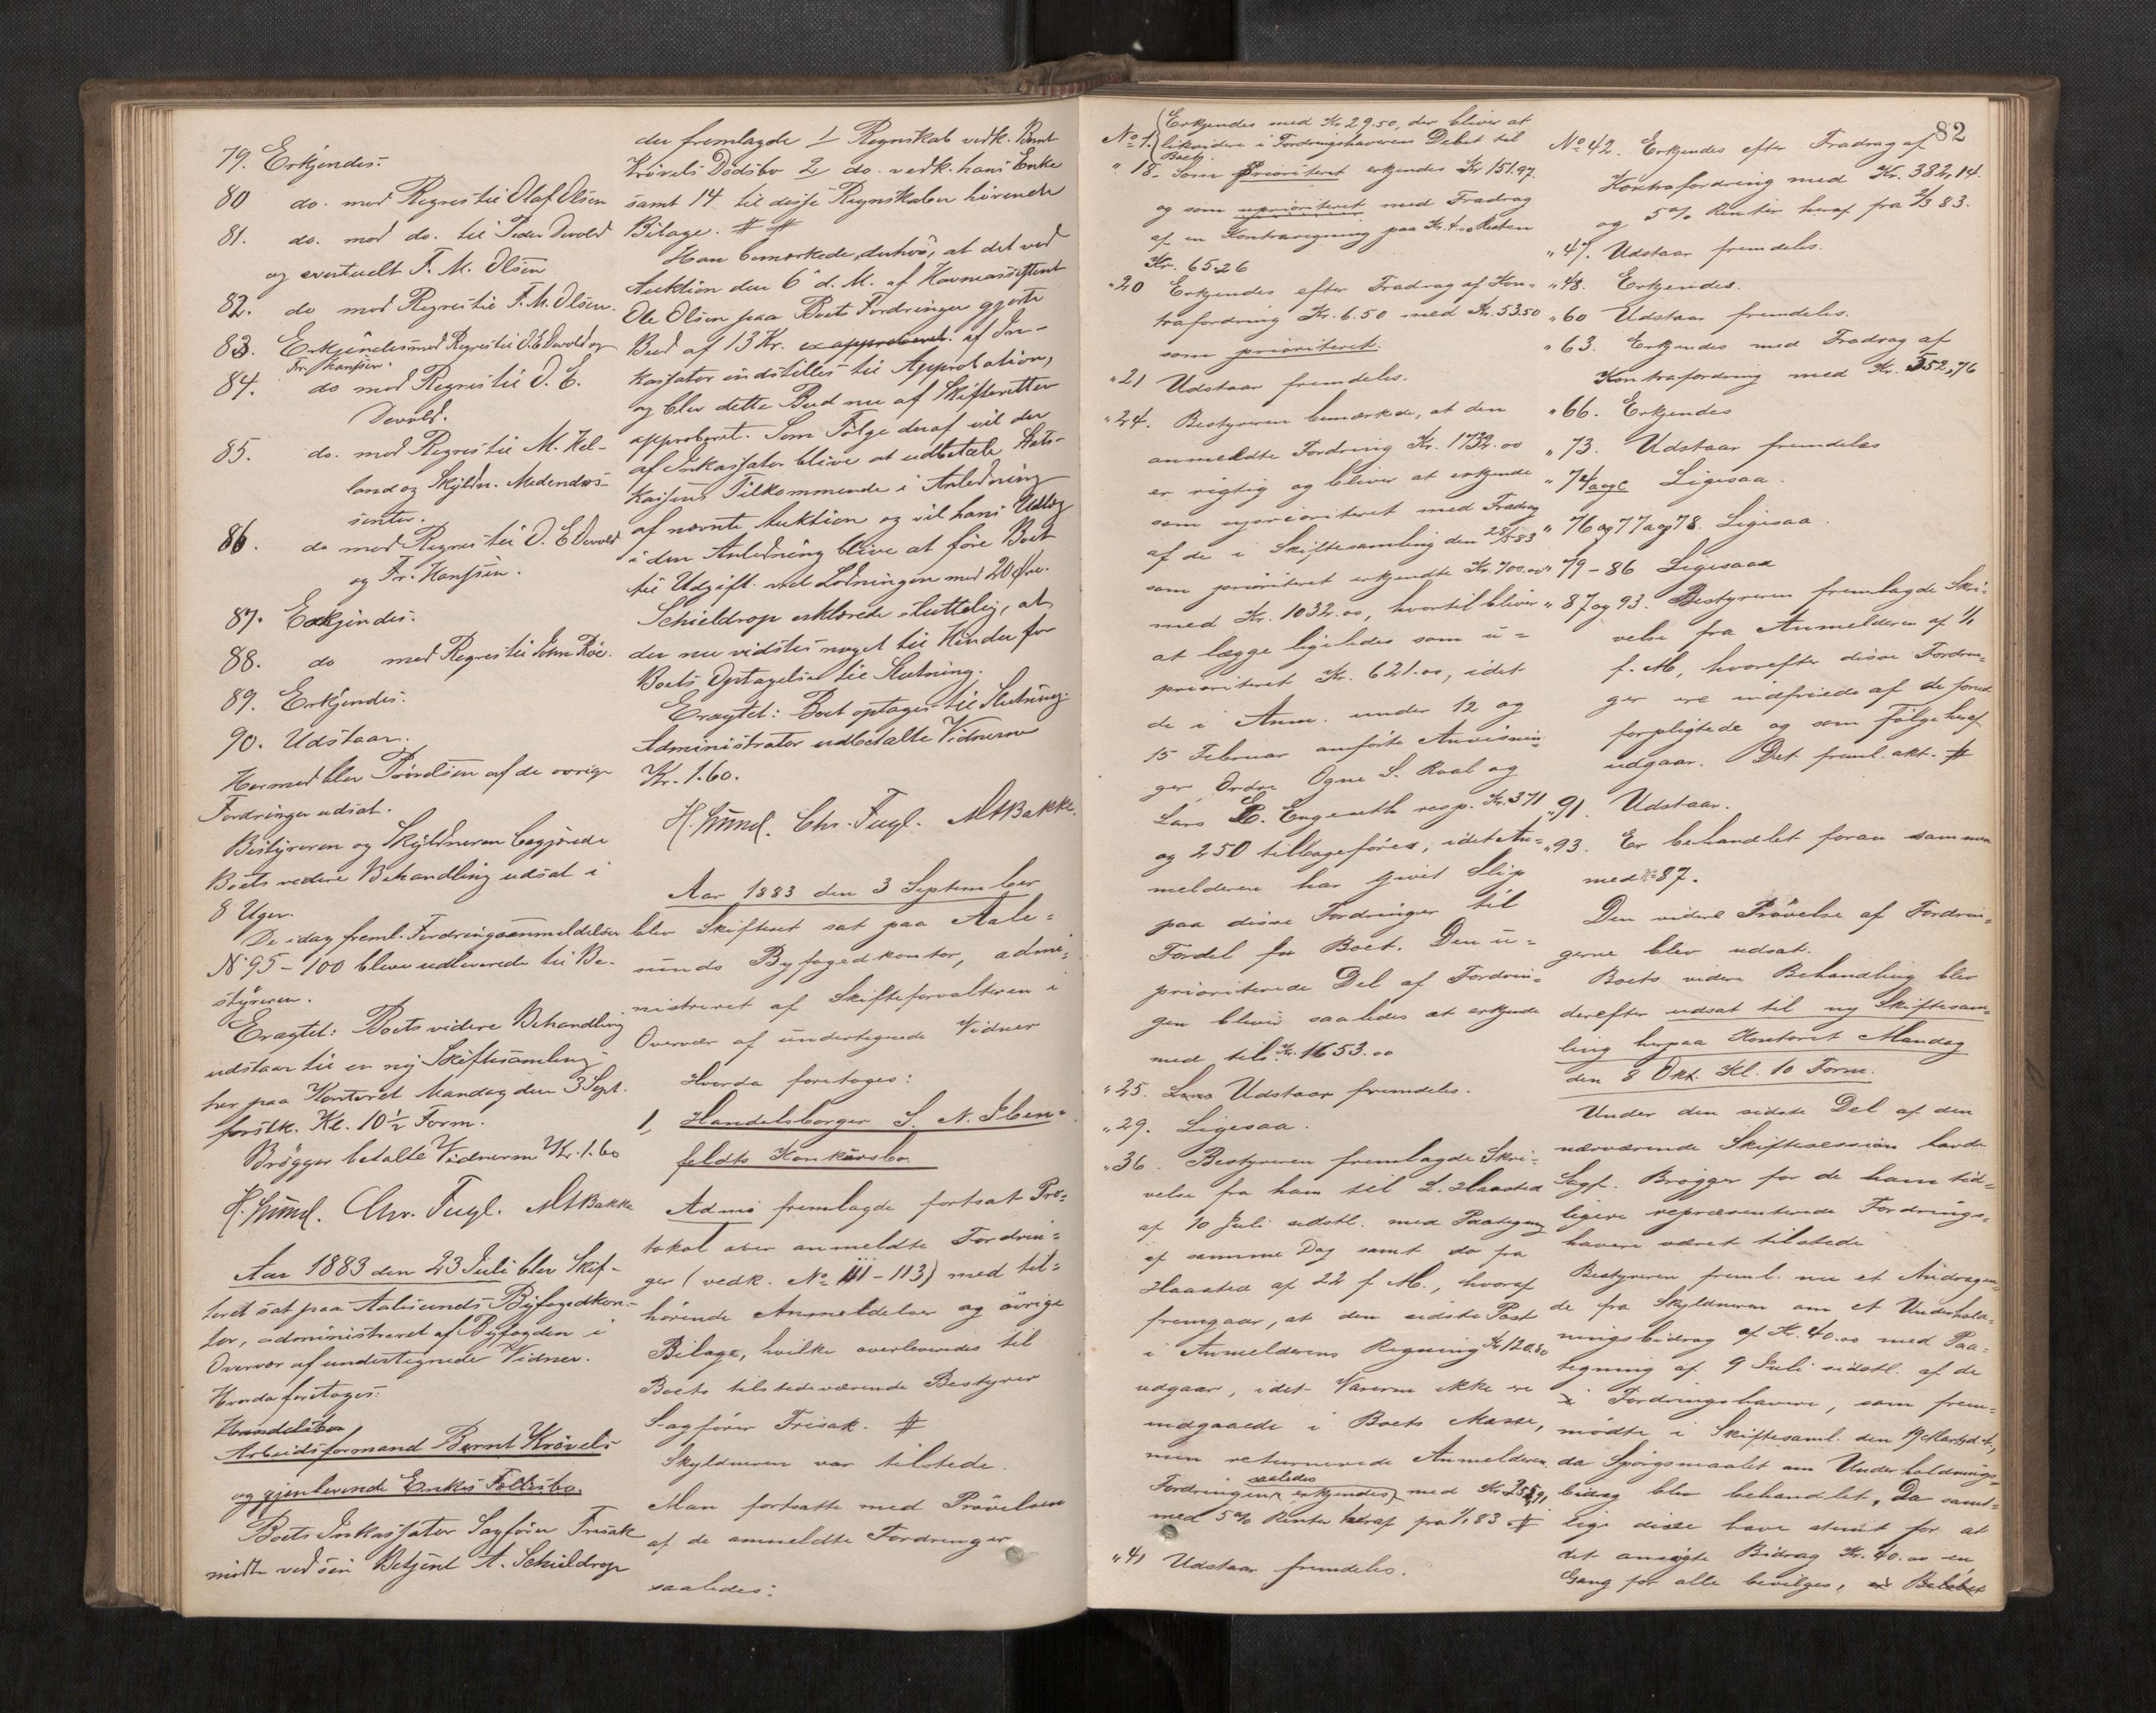 79. Erkjendes.
80 do. med Regres til Olaf Olsen
81. do. med do. til Peder Devold
og eventuelt F. M. Olsen
82. do med Regres til F. M. Olsen.
83. Erkjendes med Regres til O. E. Devold og
Fr. Hansen.
84. do med Regres til O. E.
Devold.
85. do. med Regres til M. Kel-
land og Skyldn. Medendos-
senter.
86. do med Regres til O. E Devold
og Fr. Hanssen.
87. Erkjendes.
88. do med Regres til John Röe.
89. Erkjendes.
90. Udstaar.
Hermed blev Prövelsen af de övrige
Fordringer udsat.
Bestyreren og Skyldneren begjærede
Boets videre Behandling udsat i
8 Uger.
De idag freml. Fordringsanmeldelser
No 95 - 100 bleve udleverede til Be-
styreren.
Eragtet: Boets videre Behandling
udstaar til en ny Skiftesamling
her paa Kontoret Mandag den 3 Sept.
förstk. Kl. 10 1/2 Form.
Brögger betalte Vidnerne Kr. 1.60
H. Smed. Chr. Fugl. Bakke
Aar 1883 den 23 Juli blev Skif-
teret sat paa Aalesunds Byfogedkon-
tor, administreret af Byfogden i
Overvær af undertegnede Vidner.
Hvorda foretoges:
Handelsbor
Arbeidsformand Bernt Krövels
og gjenlevende Enkes Fællesbo.
Boets Inkassator Sagförer Frisak
mödte ved sin Betjent A. Schieldrop
der fremlagde 1 Regnskab vedk. Bernt
Krövels Dödsbo 2 do. vedk. hans Enke
samt 14 til disse Regnskaber hörende
Bilage. #
Han bemærkede, derhos, at det ved
Auktion den 6 d. M. af Havneassistent
Ole Olsen paa Boets Fordringer gjorte
Bud af 13 Kr. er approberet af In-
kassator indstilles til Approbation,
og blev dette Bud nu af Skifteretten
approberet. Som Fölge deraf vil der
af Inkassator blive at udbetale Stats-
kassens Tilkommende i Anledning
af nævnte Auktion og vil hans Udlæg
i den Anledning blive at före Boet
til Udgift ved Lodningen med 20 Öre.
Schieldrop erklærede sluttelig, at
der nu vidstes noget til Hinder for
Boets Optagelse til Slutning.
Eragtet: Boet optages til Slutning.
Administrator udbetalte Vidnerne
Kr. 1.60.
H. Smed. Chr. Fugl. Bakke.
Aar 1883 den 3 September
blev Skifteret sat paa Aale-
sunds Byfogedkontor, admi-
nistreret af Skifteforvalteren i
Overvær af undertegnede Vidner
Hvorda foretoges:
1, Handelsborger S. N. Iben-
feldts Konkursbo.
Adm. fremlagde fortsat Pro-
tokol over anmeldte Fordrin-
ger (vedk. No 111 - 113) med til-
hörende Anmeldelser og övrige
Bilage, hvilke overleveredes til
Boets tilstedeværende Bestyrer
Sagförer Frisak. #
Skyldneren var tilstede.
Man fortsatte med Prövelsen
af de anmeldte Fordringer
saaledes:
82
No 1. Erkjendes med Kr. 29.50, der bliver at
likvidere i Fordringshaverens Debet til
Boet.
" 18 - Som prioriteret erkjendes Kr 151.97.
og som uprioriteret med Fradrag
af en Kontraregning paa Kr. 4.00 Resten
Kr. 65.26
" 20 Erkjendes efter Fradrag af Kon-
trafordring Kr. 6.50 med Kr. 53.50
som prioriteret.
" 21 Udstaar fremdeles.
" 24. Bestyreren bemærkede, at den
anmeldte Fordring Kr. 1732.00
er rigtig og bliver at erkjende
som uprioriteret med Fradrag
af de i Skiftesamling den 28/5 83
som prioriteret erkjendte Kr. 700.00
med Kr. 1032.00, hvortil bliver
at lægge ligeledes som u-
prioriteret Kr. 621.00, idet
de i Anm. under 12 og
15 Februar anförte Anvisnin-
ger Ordre Ogne S. Roal og
Lars L. Engeseth resp. Kr. 371
og 250 tilbageföres, idet An-
melderen har givet Slip
paa disse Fordringer til
Fordel for Boet. Den u-
prioriterede Del af Fordrin-
gen bliver saaledes at erkjende
med tils. Kr. 1653.00
" 25. Udstaar fremdeles.
" 29. Ligesaa.
" 36. Bestyreren fremlagde Skri-
velse fra ham til L. Haasted
af 10 Juli sidstl. med Paategning
af samme Dag samt do fra
Haasted af 22 f. M., hvoraf
fremgaar, at den sidste Post
i Anmelderens Regning Kr 120.80
udgaar, idet Varerne ikke ere
indgaaede i Boets Masse,
men returnerede Anmelderen.
Fordringen saaledes erkjendes med Kr 255.91
med 5 % Renter heraf fra 1/1 83 #
" 41 Udstaar fremdeles.
No 42. Erkjendes efter Fradrag af
Kontrafordring med Kr. 382.14
og 5 % Renter heraf fra 2/3 83.
" 47. Udstaar fremdeles.
" 48. Erkjendes.
" 60 Udstaar fremdeles.
" 63. Erkjendes med Fradrag af
Kontrafordring med Kr. 352,76
" 66. Erkjendes
" 73. Udstaar fremdeles
" 74 a og c Ligesaa.
" 76 og 77 a og 78. Ligesaa.
" 79 - 86 Ligesaa
" 87 og 93. Bestyreren fremlagde Skri-
velse fra Anmelderen af 1/1
f. M, hvorefter disse Fordrin-
ger ere indfriede af de forud
forpligtede og som Fölge heraf
udgaar. Det freml. akt. #
" 91. Udstaar.
" 93. Er behandlet foran sammen
med No 87.
Den videre Prövelse af Fordrin-
gerne blev udsat.
Boets videre Behandling blev
derefter udsat til ny Skiftesam-
ling her paa Kontoret Mandag
den 8 Okt. Kl. 10 Form.
Under den sidste Del af den
nærværende Skiftesession havde
Sagf. Brögger for de ham tid-
ligere repræsenterede Fordrings-
havere været tilstede
Bestyreren freml. nu et Andragen-
de fra Skyldneren om et Underhold-
ningsbidrag af Kr. 40.00 med Paa-
tegning af 9 Juli sidstl. af de
Fordringshavere, som frem-
mödte i Skiftesaml. den 19 Marts d. A.,
da Spörgsmaalet om Underholdnings-
bidrag blev behandlet, Da samt-
lige disse have stemt for at
det ansögte Bidrag Kr. 40.00 en
Gang for alle bevilges, Belöbet